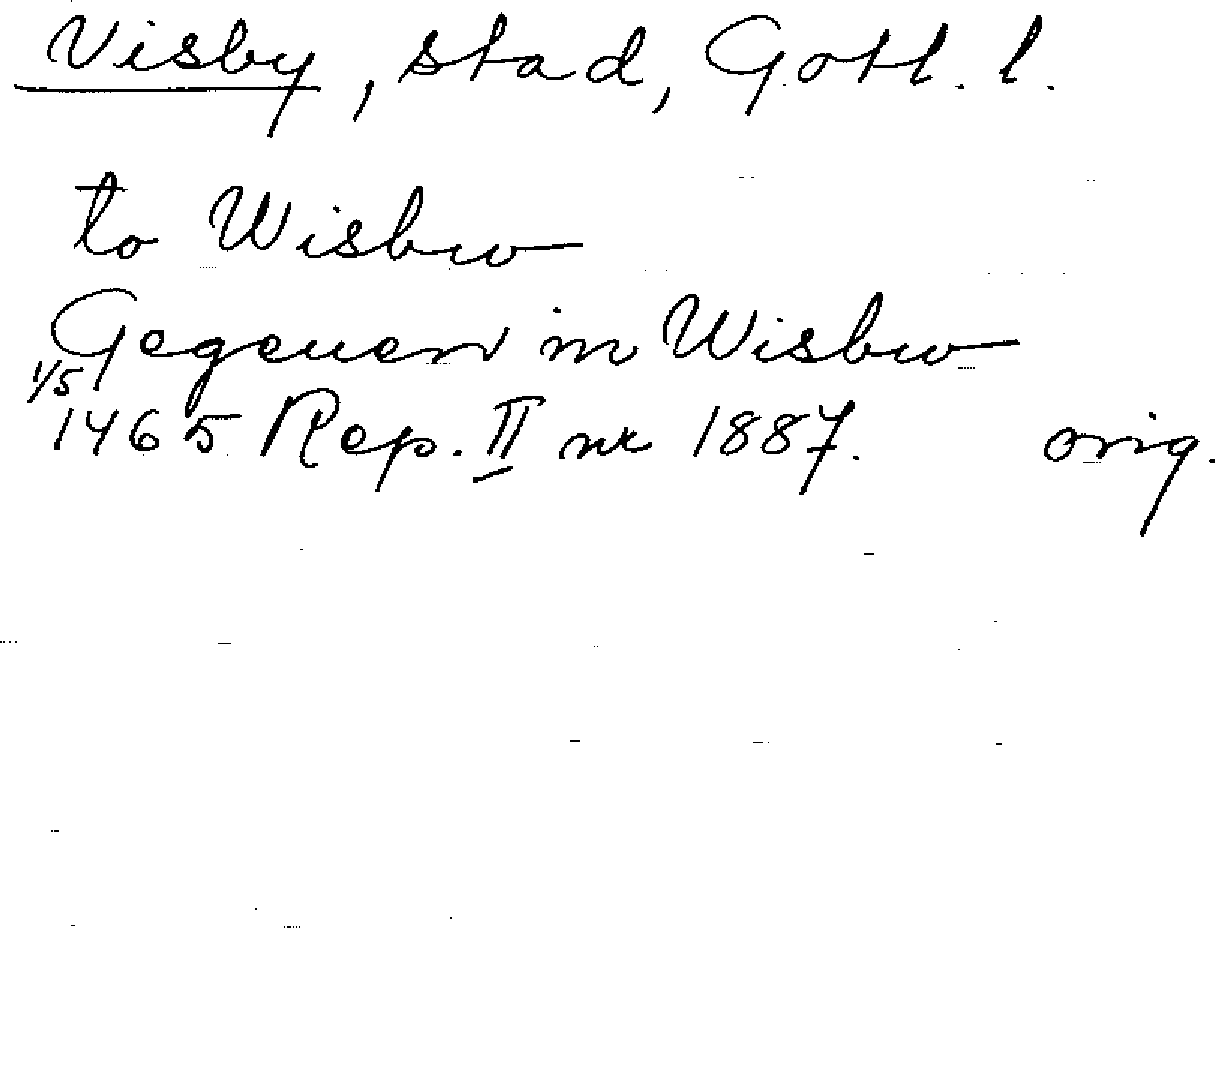 Visby, stad, Gotl. l.
to Wisbw
Gegeuen in Wisbw
1/5
1465 Rep. II nr 1887. orig.